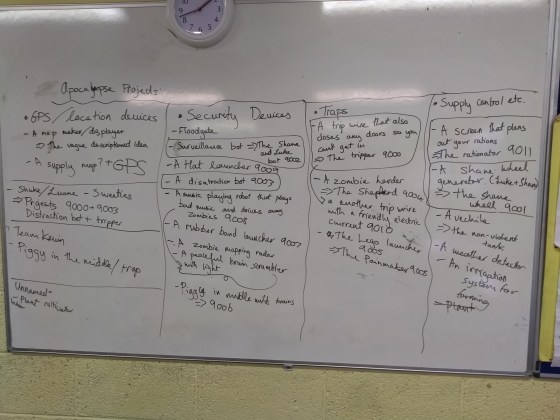 Apocalypse Projects:
• GPS / Location devices
- A map maker / displayer
⇒ The vague descriptioned idea
- A supply map? + GPS
Shuke / Luane - Sweeties
⇒ Projects 9000 + 9003
Distraction bot + tripper
Team Kevin
- Piggy in the middle / trap
Unnamed
• Security Devices
- Floodgate
- Surveillance bot ⇒ The Shane
and Luke
bot 9002
- A Hat Launcher 9009
- A distraction bot 9003
- A music playing robot that plays
bad music and drives away
zombies 9008
- A rubber band launcher 9007
- A zombie mapping radar
- A peaceful brain scrambler
with light
- Piggy in middle with trains
⇒ 9006
• Traps
- A trip wire that also
closes any doors so you
can't get in
⇒ The tripper 9000
- A zombie herder
⇒ The Shepherd
- a another trip wire
with a friendly electric
current 9010
- The Lego launcher
9005
⇒ The Painmaker 9005
• Supply control etc.
- A screen that plans
out your rations 9011
⇒ The rationator
- A Shane wheel
generator. (Luke + Shane)
⇒ The Shane
wheel 9001
- A vechile
⇒ the non-violent
tank
- A weather detector
- An irrigation
system for
farming
⇒ Plant